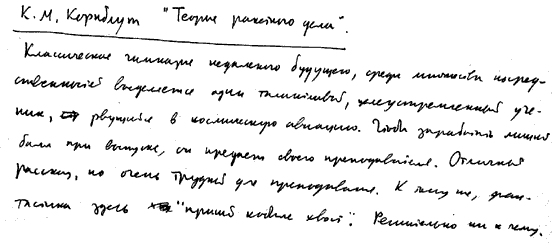 К. М. Корнблут "Теория ракетного дела".
Классическое гимназие недалёкого будущего, среди множества посред-
ственностей выделяется один талантливый, целеустремленный уче-
ник, рвущийся в космическую авиацию. Чтобы заработать лишние
баллы при выпуске, он предает своего преподавателя. Отличный
рассказ, но очень трудный для преподавателя. К тому же, фан-
тастика здесь "пришей кобыле хвост". Решительно ни к чему.